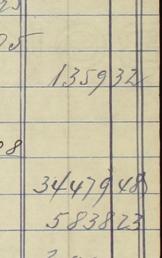 25
05
135932
08
3447948
583823